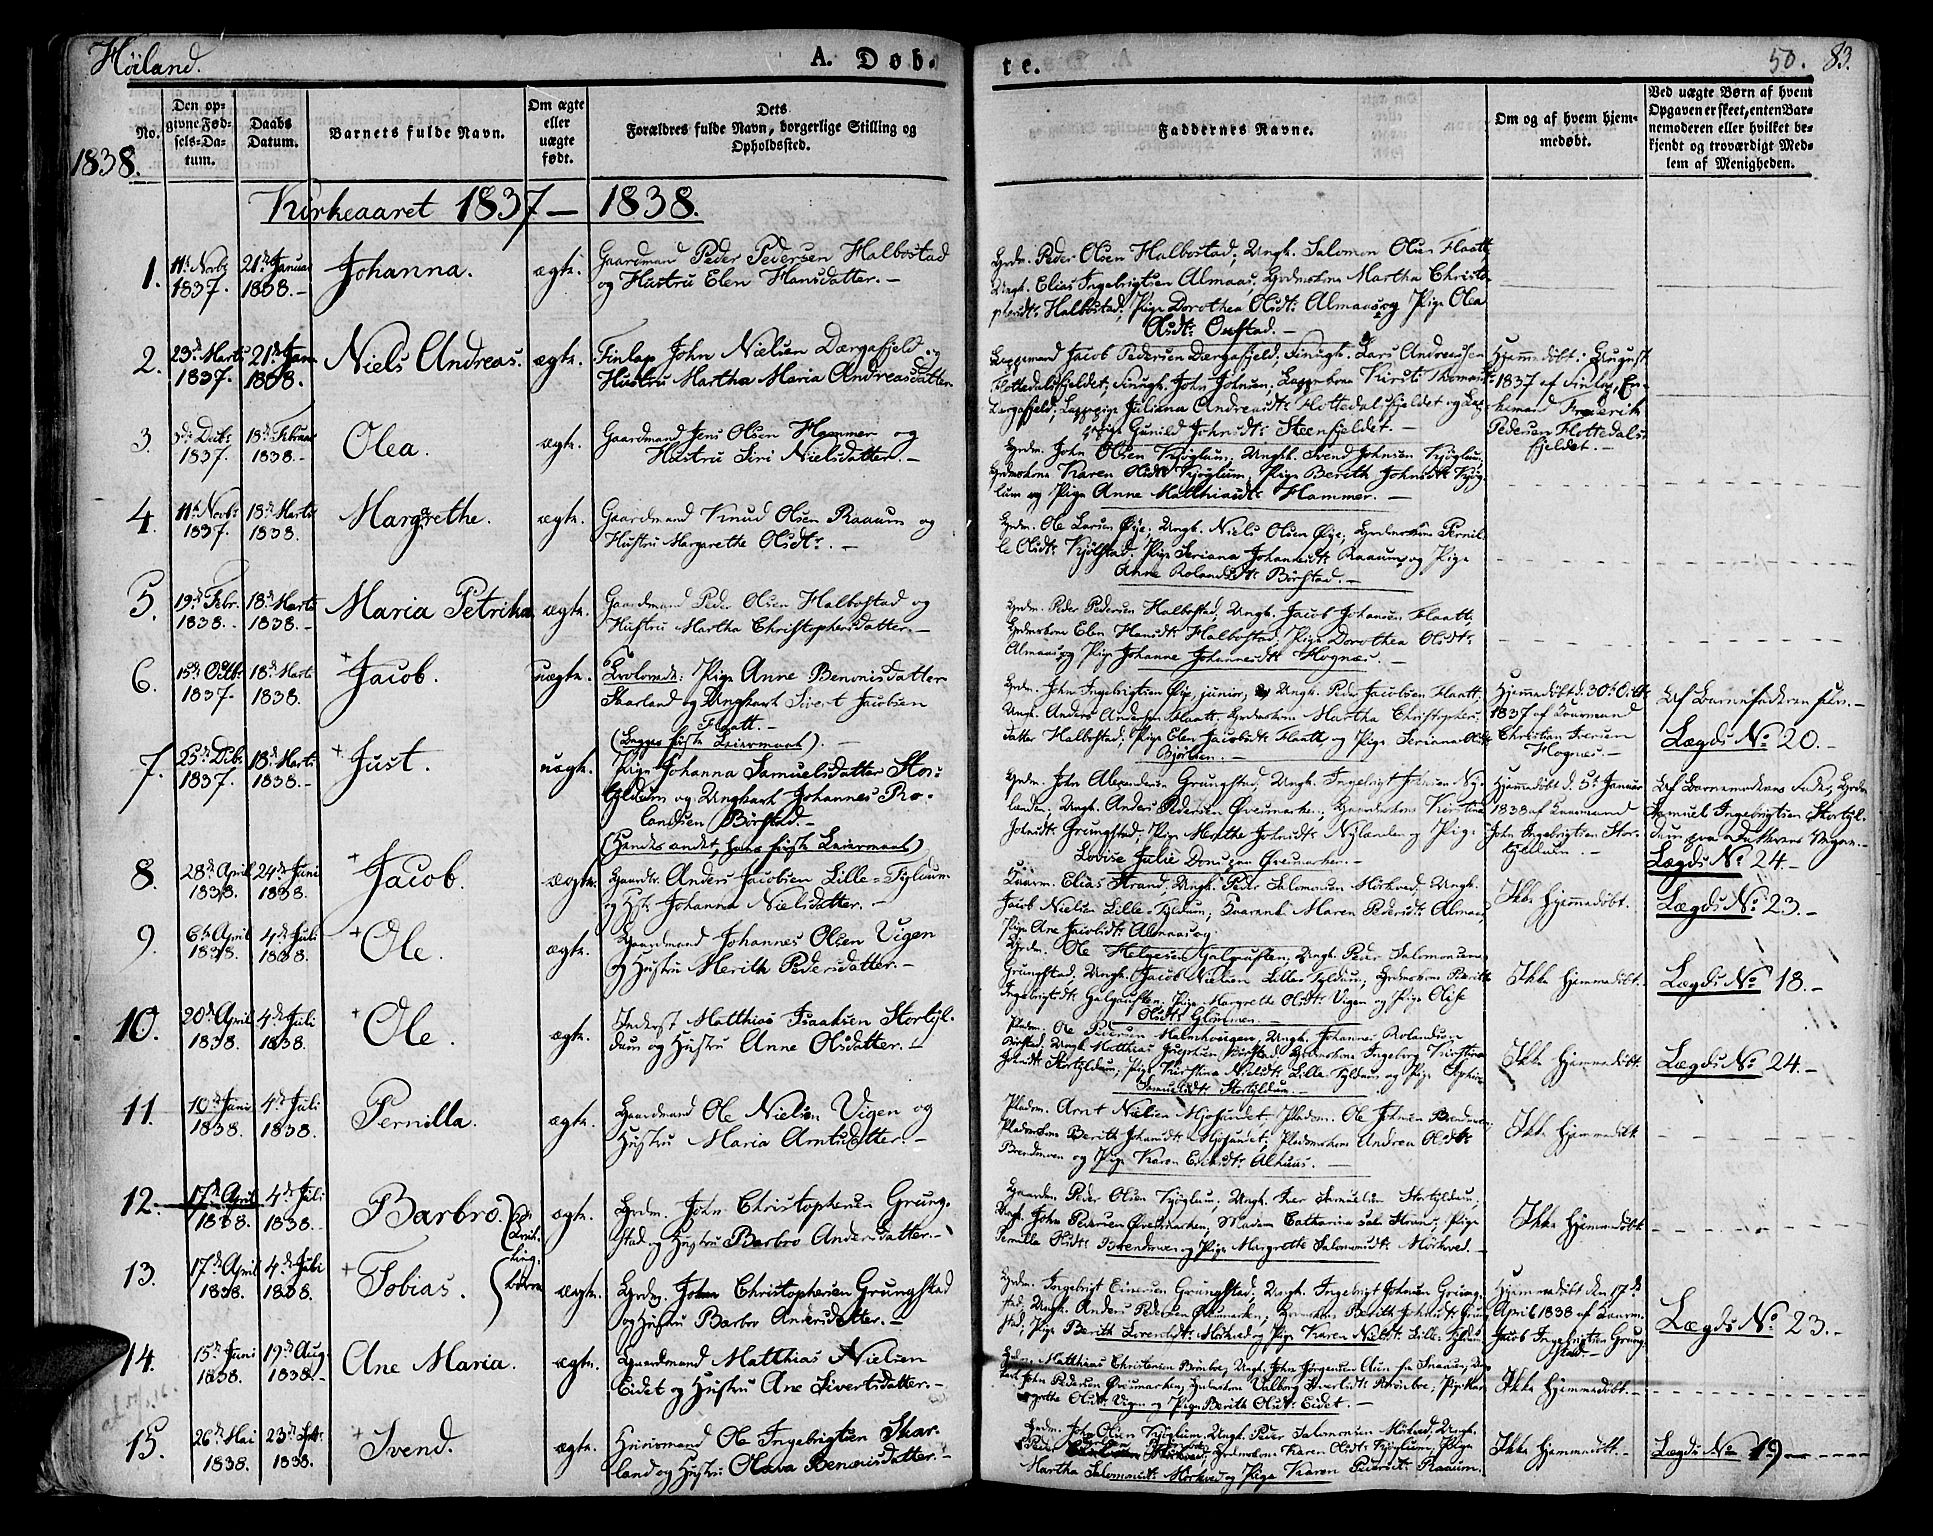 Höiland.
A. Døb-
te.
50. 83.
No.
Den op-
givne Fød-
sels-Da-
tum.
Daabs
Datum.
Barnets fulde Navn.
Om ægte
eller
uægte
født.
Dets
Forældres fulde Navn, borgerlige Stilling og
Opholdssted.
Faddernes Navne.
Om og af hvem hjem-
medøbt.
Ved uægte Børn af hvem
Opgaven er skeet, enten Bar-
nemoderen eller hvilket be-
kjendt og troværdigt Med-
lem af Menigheden.
1838.
Kirkeaaret 1837 — 1838.
1.
11te Novbr
1837.
21de Januar
1838.
Johanna.
ægte.
Gaardmand Peder Pedersen Halbostad
og Hustru Elen Hansdatter.
Grdm. Peder Olsen Halbostad; Ungk. Salomon Olsen Flaatt,
Ungk. Elias Ingebrigtsen Almaas, Grdmskone Martha Christo-
phersdtr Halbostad; Pige Dorothea Olsdtr Almaas og Pige Olea
Olsdtr
2.
23de Marts
1837.
21de Jan.
1838.
Niels Andreas.
ægte.
Finlap John Nielsen Dærgafjeld og
Hustru Martha Maria Andreasdatter
Lappmand Jacob Pedersen Dærgafjeld; Lars Andreassen
Flottedalsfjeldet; John Johnsen; Kirsti Thomasdtr
Juliana Andreasdtr Flottedalsfjeldet og Lap-
pige Gunild Johnsdtr Steenfjeldet.
Hjemmedøbt i August
1837 af Finlap, En-
kemand Frederik
Pedersen Flottedals-
fjeldet.
3.
3de Decbr
1837.
18de Februar
1838.
Olea.
ægte.
Gaardmand Jens Olsen Hammer og
Hustru Siri Nielsdatter.
Grdm. John Olsen Kjøglum; Ungk. Svend Johnsen Kjøglum;
Grdmskone Karen Olsdtr Kjøglum; Pige Berith Johnsdtr Kjøg-
lum og Pige Anne Matthiasdtr Hammer.
4.
11te Novbr
1837.
18de Marts
1838.
Margrethe.
ægte.
Gaardmand Knud Olsen Raaum og
Hustru Margarethe Olsdtr.
Grdm. Ole Larsen Øye; Ungk. Niels Olsen Øye, Grdmskone Pernil-
le Olsdtr Kjølstad, Pige Seriana Johannesdtr Raaum og Pige
Anne Rolandsdtr Börstad.
5.
19de Febr.
1838.
18de Marts
1838.
Maria Petrika
ægte.
Gaardmand Peder Olsen Halbostad og
Hustru Martha Christophersdatter.
Grdm. Peder Pedersen Halbostad, Ungk. Jacob Johansen Flaatt
Grdmskone Elen Hansdtr Halbostad, Pige Dorothea Olsdtr
Almaas og Pige Johanne Johannesdtr Hognæs.
6.
15de Octbr
1837.
18de Marts
1838.
+ Jacob.
uægte.
Pige Anne Benonisdatter
Skarland og Ungkarl Sivert Jacobsen
Flaatt.
(Begges første Leiermaal).
Grdm. John Ingebrigtsen Øye, junior, Ungk. Peder Jacobsen Flaatt,
Ungk. Anders Andersen Flaatt, Grdmskone Martha Christophers-
datter Halbostad; Pige Elen Jacobsdtr Flaatt og Pige Seriana Olsdtr
Hjemmedøbt d. 30te Octbr
1837 af Kaarmand
Christian Iversen
Hognæs.
Af Barnefaderen selv.
Lægds No 20.
7.
25de Dcbr.
1837.
18de Marts
1838.
+ Just.
uægte.
Pige Johanna Samuelsdatter Stor-
tyldum og Ungkarl Johannes Ro-
landsen Børstad.
(Hendes andet, hans første Leiermaal)
Grdm. John Alexandersen Grungstad, Ungk. Ingebrigt Johnsen Ny-
landen, Ungk. Anders Pedersen Øvermarken;
Johnsdtr Grungstad; Pige Marthe Johnsdtr Nylanden og Pige
Lovise Julie Dons paa Øvermarken.
Hjemmedøbt d. 5te Januar
1838 af Kaarmand
John Ingebrigtsen Stor-
tyldum.
Af Barnemoderens Fader, Grdm
Samuel Ingebrigtsen Stortyl-
dum paa Datterens Vegne.
Lægds No 24.
8.
28de April
1838.
24de Juni
1838.
+ Jacob.
ægte.
Anders Jacobsen Lille-Tyldum
og Hstr. Johanna Nielsdatter.
Kaarm. Elias Strand, Ungk. Peder Salomonsen Mörkved, Ungk.
Jacob Nielsen Lille-Tyldum; Maren Pedersdtr Almaas
Pige Ane Jacobsdtr Almaas og
Ikke Hjemmedøbt.
Lægds No 23.
9.
6te April
1838.
4de Juli
1838.
+ Ole.
ægte.
Gaardmand Johannes Olsen Vigen
og Hustru Merith Pedersdatter.
Grdm. Ole Helgesen Galguften, Ungk. Peder Salomonsen
Grungstad, Ungk. Jacob Nielsen Lille Tyldum, Grdmskone Berith
Ingebrigtsdtr Galguften; Pige Margrethe Olsdtr Vigen og Pige Olise
Olsdtr
Ikke Hjemmedøbt.
Lægds No 18.
10.
20de April
1838.
4de Juli
1838.
+ Ole.
ægte.
Inderst Matthias Isaaksen Stortyl-
dum og Hustru Anne Olsdatter.
Pladsm. Ole Pedersen Ungk. Johannes Rolandsen
Börstad, Ungk. Matthias Josephsen Börstad, Grdmskone Ingeborg Kirstina
Stortyldum, Pige Kirstina Nielsdtr Lille-Tyldum og Pige
Samuelsdtr Stortyldum.
Ikke Hjemmedøbt
Lægds No 24.
11.
10de Juni
1838.
4de Juli
1838.
Pernilla.
ægte.
Gaardmand Ole Nielsen Vigen og
Hustru Maria Arntsdatter.
Pladsm. Arnt Nielsen Mjosundet, Pladsm. Ole Johnsen Brendmoen;
Pladsmskone Berith Johansdtr Mjosundet; Pladsmskone Andrea Olsdtr
Brendmoen og Pige Karen Eriksdtr Alhuus.
Ikke Hjemmedøbt
12.
17de April
1838.
4de Juli
1838.
Barbro.
Tvil-
ling-
børn
ægte.
Grdm. John Christophersen Grung-
stad og Hustru Barbro Andersdatter.
Gaardm. Peder Olsen Kjøglum, Ungk. Iver Samuelsen Stortyldum,
Ungk. John Pedersen Øvermarken, Madam Catharina Strand, Pige
Pernille Olsdtr Brendmoen og Pige Margrethe Salomonsdtr Mörkved.
Ikke Hjemmedøbt
13.
17de April
1838.
4de Juli
1838.
+ Tobias.
ægte.
Grdm. John Christophersen Grungstad
og Hustru Barbro Andersdatter.
Grdm. Ingebrigt Grungstad, Ungk. Ingebrigt Johnsen Grung-
stad, Ungk. Anders Pedersen Øvermarken, Grdmskone Berith Johnsdtr Grung-
stad, Pige Berith Lorentsdtr Mörkved og Pige Karen Nielsdtr Lille-Tyldum
Hjemmedøbt den 17de
April 1838 af Kaarm.
Jacob Ingebrigtsen Grung-
stad.
Lægds No 23.
14.
15de Juni
1838.
19de Aug
1838.
Ane Maria.
ægte.
Gaardmand Matthias Nielsen
Eidet og Hustru Ane Sivertsdatter.
Matthias Christensen Brönbo, Ungk. John Jörgensen Aun fra Snaasen, Ung-
karl John Pedersen Øvermarken; Valborg Brönbo, Pige Mar-
grethe Olsdtr Vigen og Pige Berith Olsdtr Eidet.
Ikke Hjemmedøbt.
15.
26de Mai
1838.
23de Sept.
1838.
+ Svend.
ægte.
Huusmand Ole Ingebrigtsen Skar-
land og Hustru Olava Benonisdatter.
Grdm. John Olsen Kjøglum, Ungk. Peder Salomonsen Mörkved, Ungk.
Peder Mörkved, Grdmskone Karen Olsdtr Kjøglum, Pige
Martha Salomonsdtr Mörkved og Pige Karen Pedersdtr Raaum.
Ikke Hjemmedøbt.
Lægds No 19